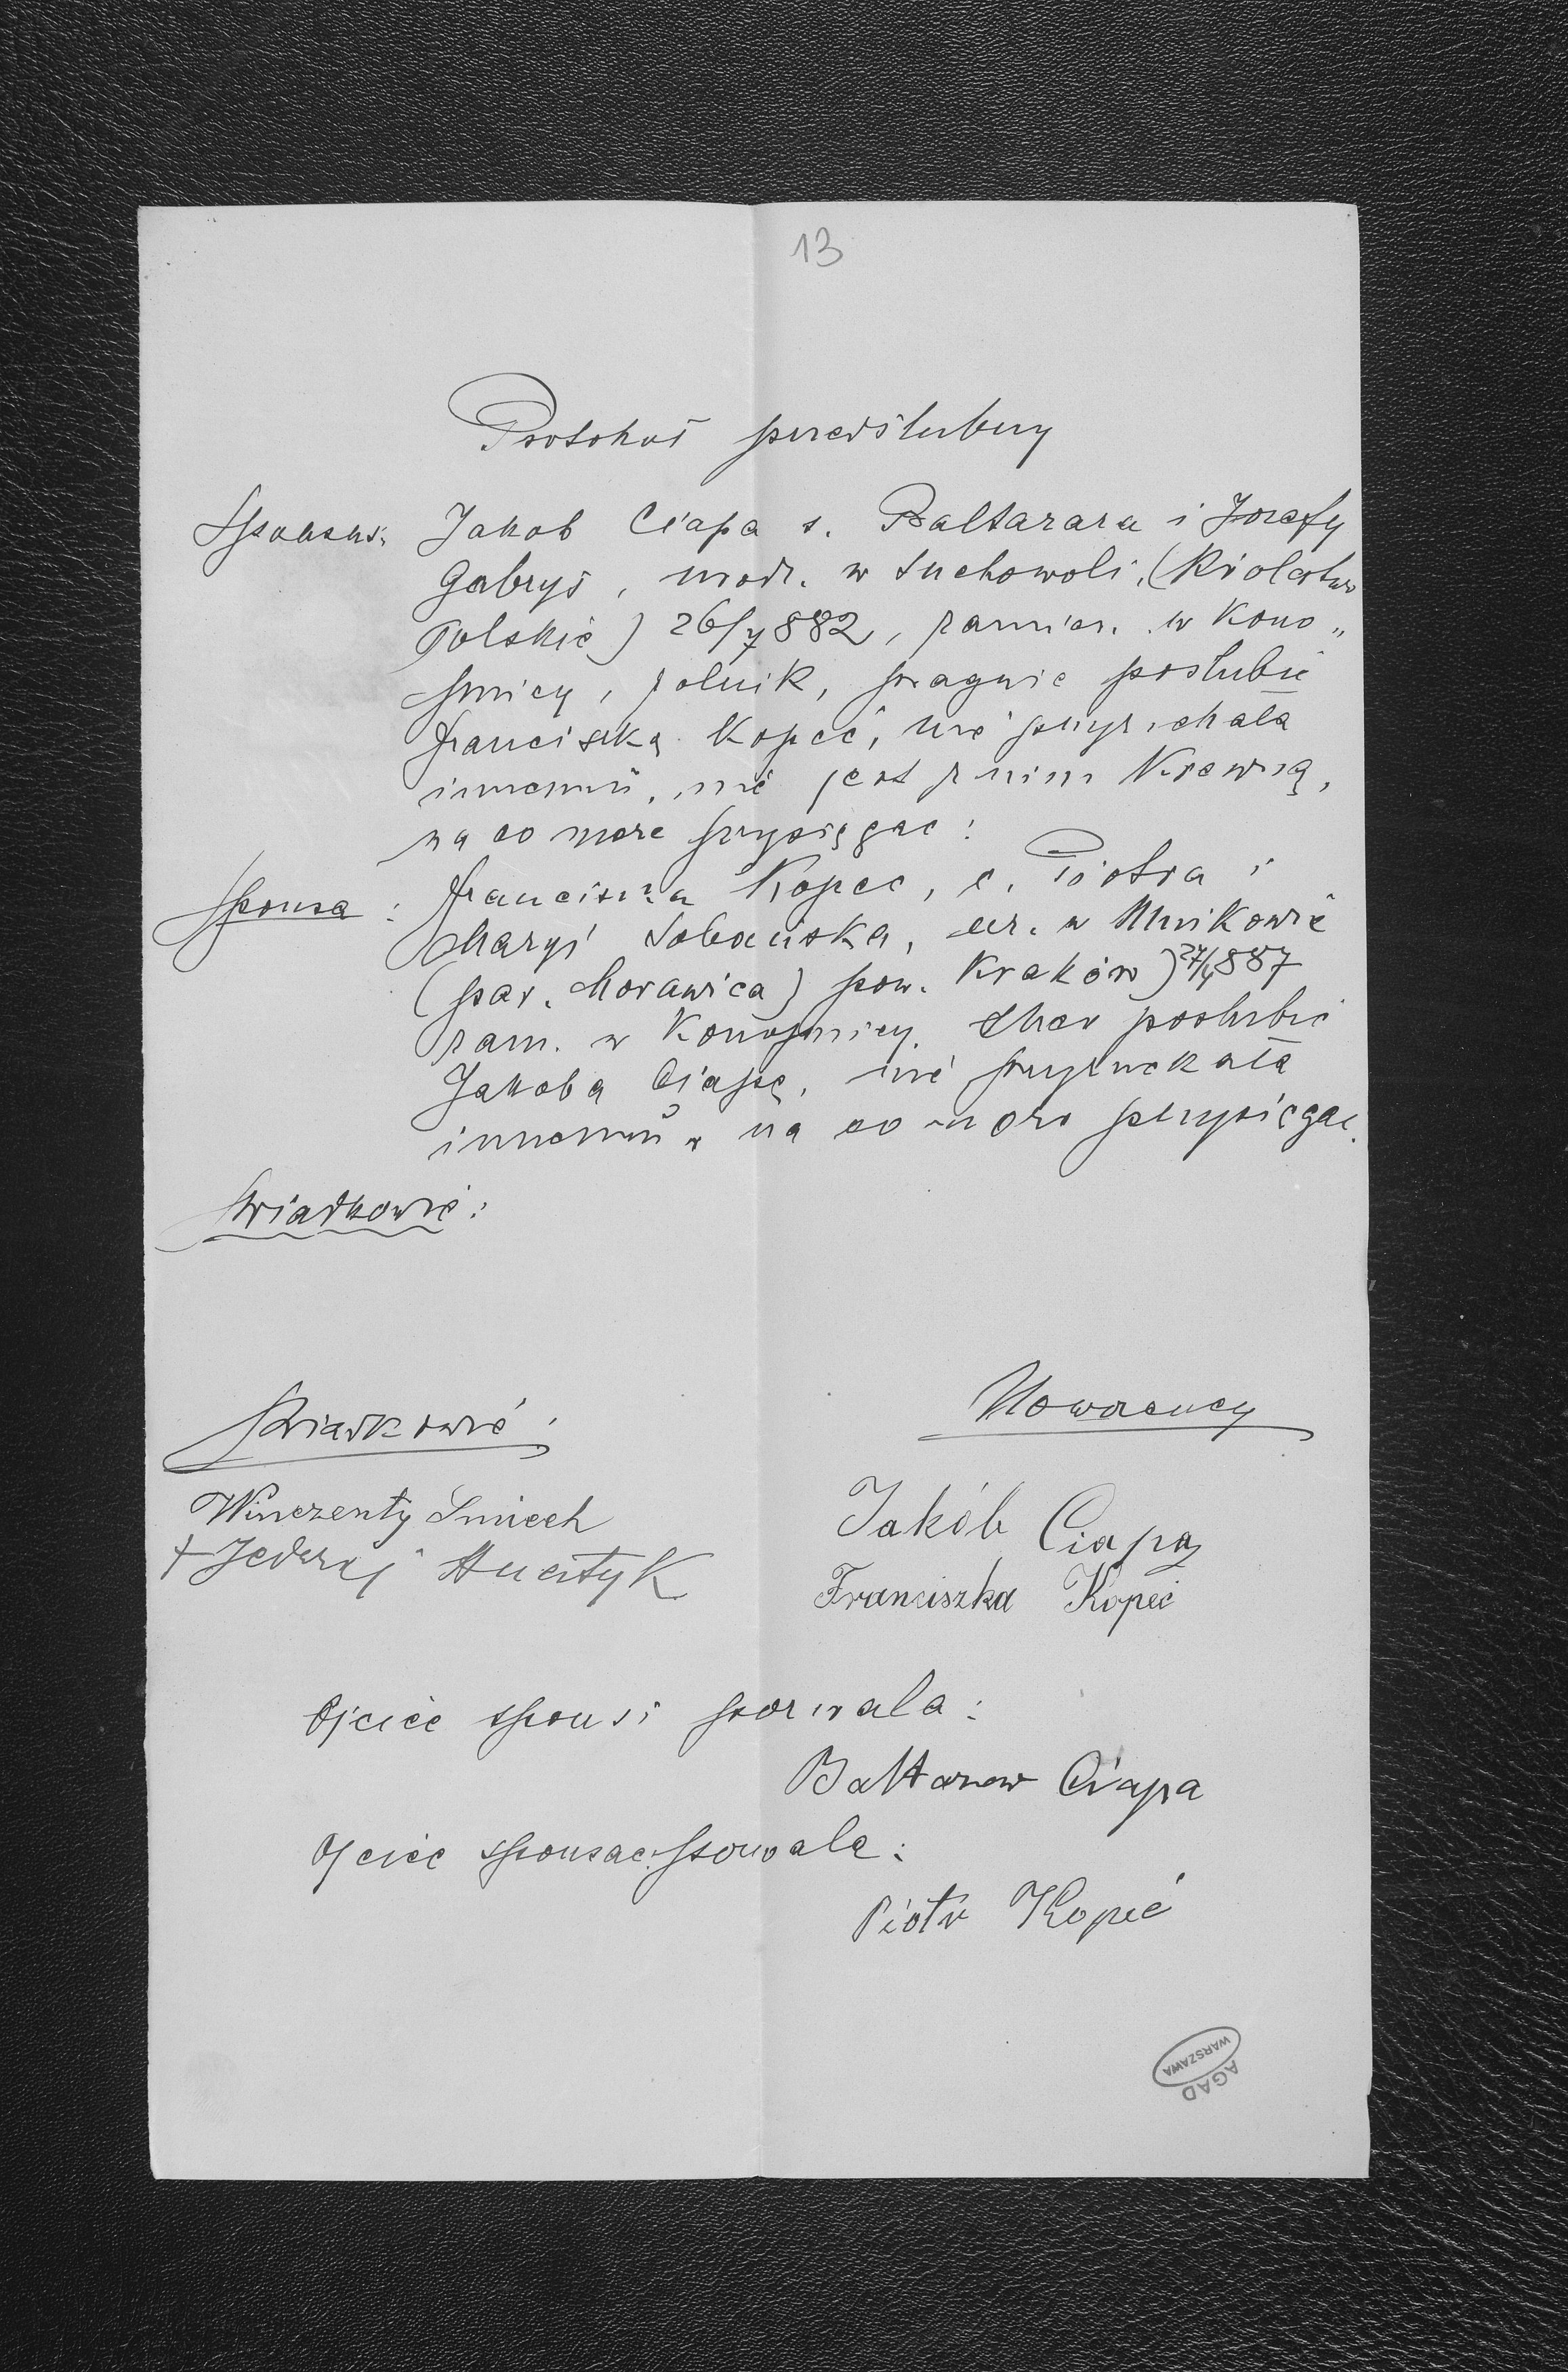 13
Protokół przedślubny
Sponsus: Jakob Ciapa s. Baltazara i Jozefy
Gabryś, urodz. w Suchowoli, (Królestwo
Polskie) 26/7 882, zamier. w Kono„
pnicy, rolnik, pragnie poślubić
Franciszkę Kopeć, nie przyrzekała
innemu, nie jest z nim Krewną,
na co może przysięgać:
Sponsa: Franciszka Kopec, c. Piotra i
Maryi Sobańska, ur. w Mnikowie
(par. Morawica) pow. Kraków) 27/4 887
zam. w Konopnicy. Chce poślubić
Jakoba Ciapę, nie przyrzekała
innemu, na co może przysięgać.
Swiadkowie:
Swiadkowie:
Nowożency
Winczenty Smiech
+ Jedrzej
Jakób Ciapa
Franciszka Kopeć
Ojciec sponsi pozwala:
Baltazar Ciapa
Ojciec sponsae pozwala:
Piotr Kopeć
AGAD
WARSZAWA